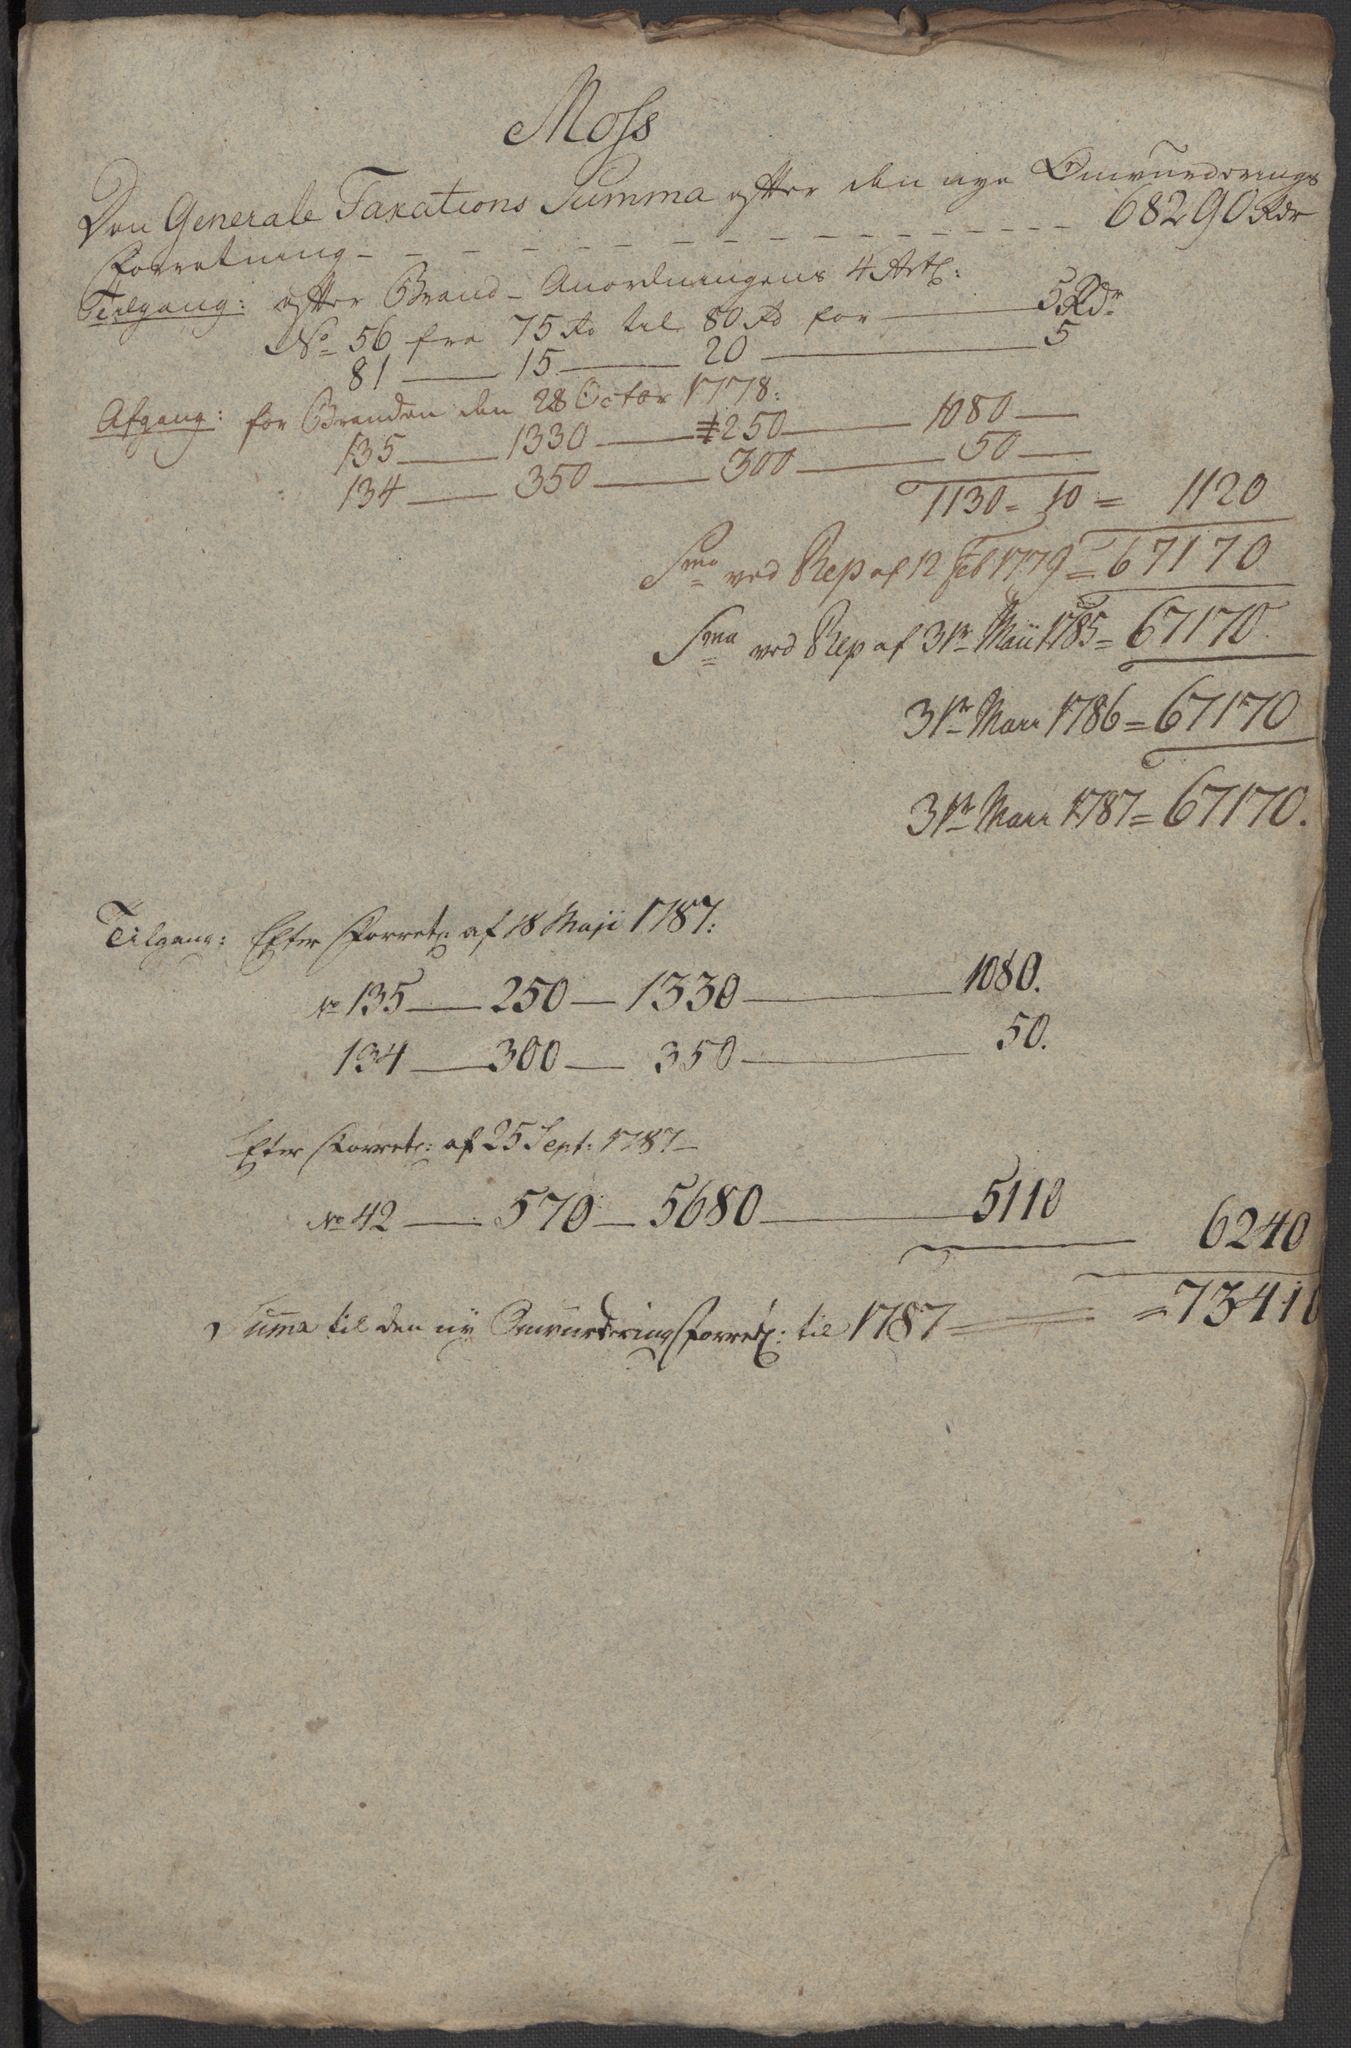 Moss
Den Generale Taxations Summa efter den nye Omvurderings
Forretning - - - - - - - - - - 68290 Rdr
Tilgang: efter Brand-Anordningens 4 Art:
No 56 fra 75 Rd til 80 Rd for — 5 Rdr
81 — 15 — 20 — 5
Afgang: for Branden den 28 Octbr 1778:
135 — 1330 — 250 — 1080 —
134 — 350 — 300 — 50 —
1130 = 10 = 1120
Sma ved Rep af 12 Feb 1779 = 67170
Sma ved Rep af 31te Maii 1785 = 67170.
31te Mars 1786 = 67170
31te Mars 1787 = 67170.
Tilgang: Efter Forretn: af 18 Maji 1787:
No 135 — 250 — 1330 — 1080.
134 — 300 — 350 — 50.
Efter Forretn: af 25 Sept: 1787 —
No 42 — 570 — 5680 — 5110
6240
Summa til den ny Omvurderings Forretn: til 1787 = = 73410